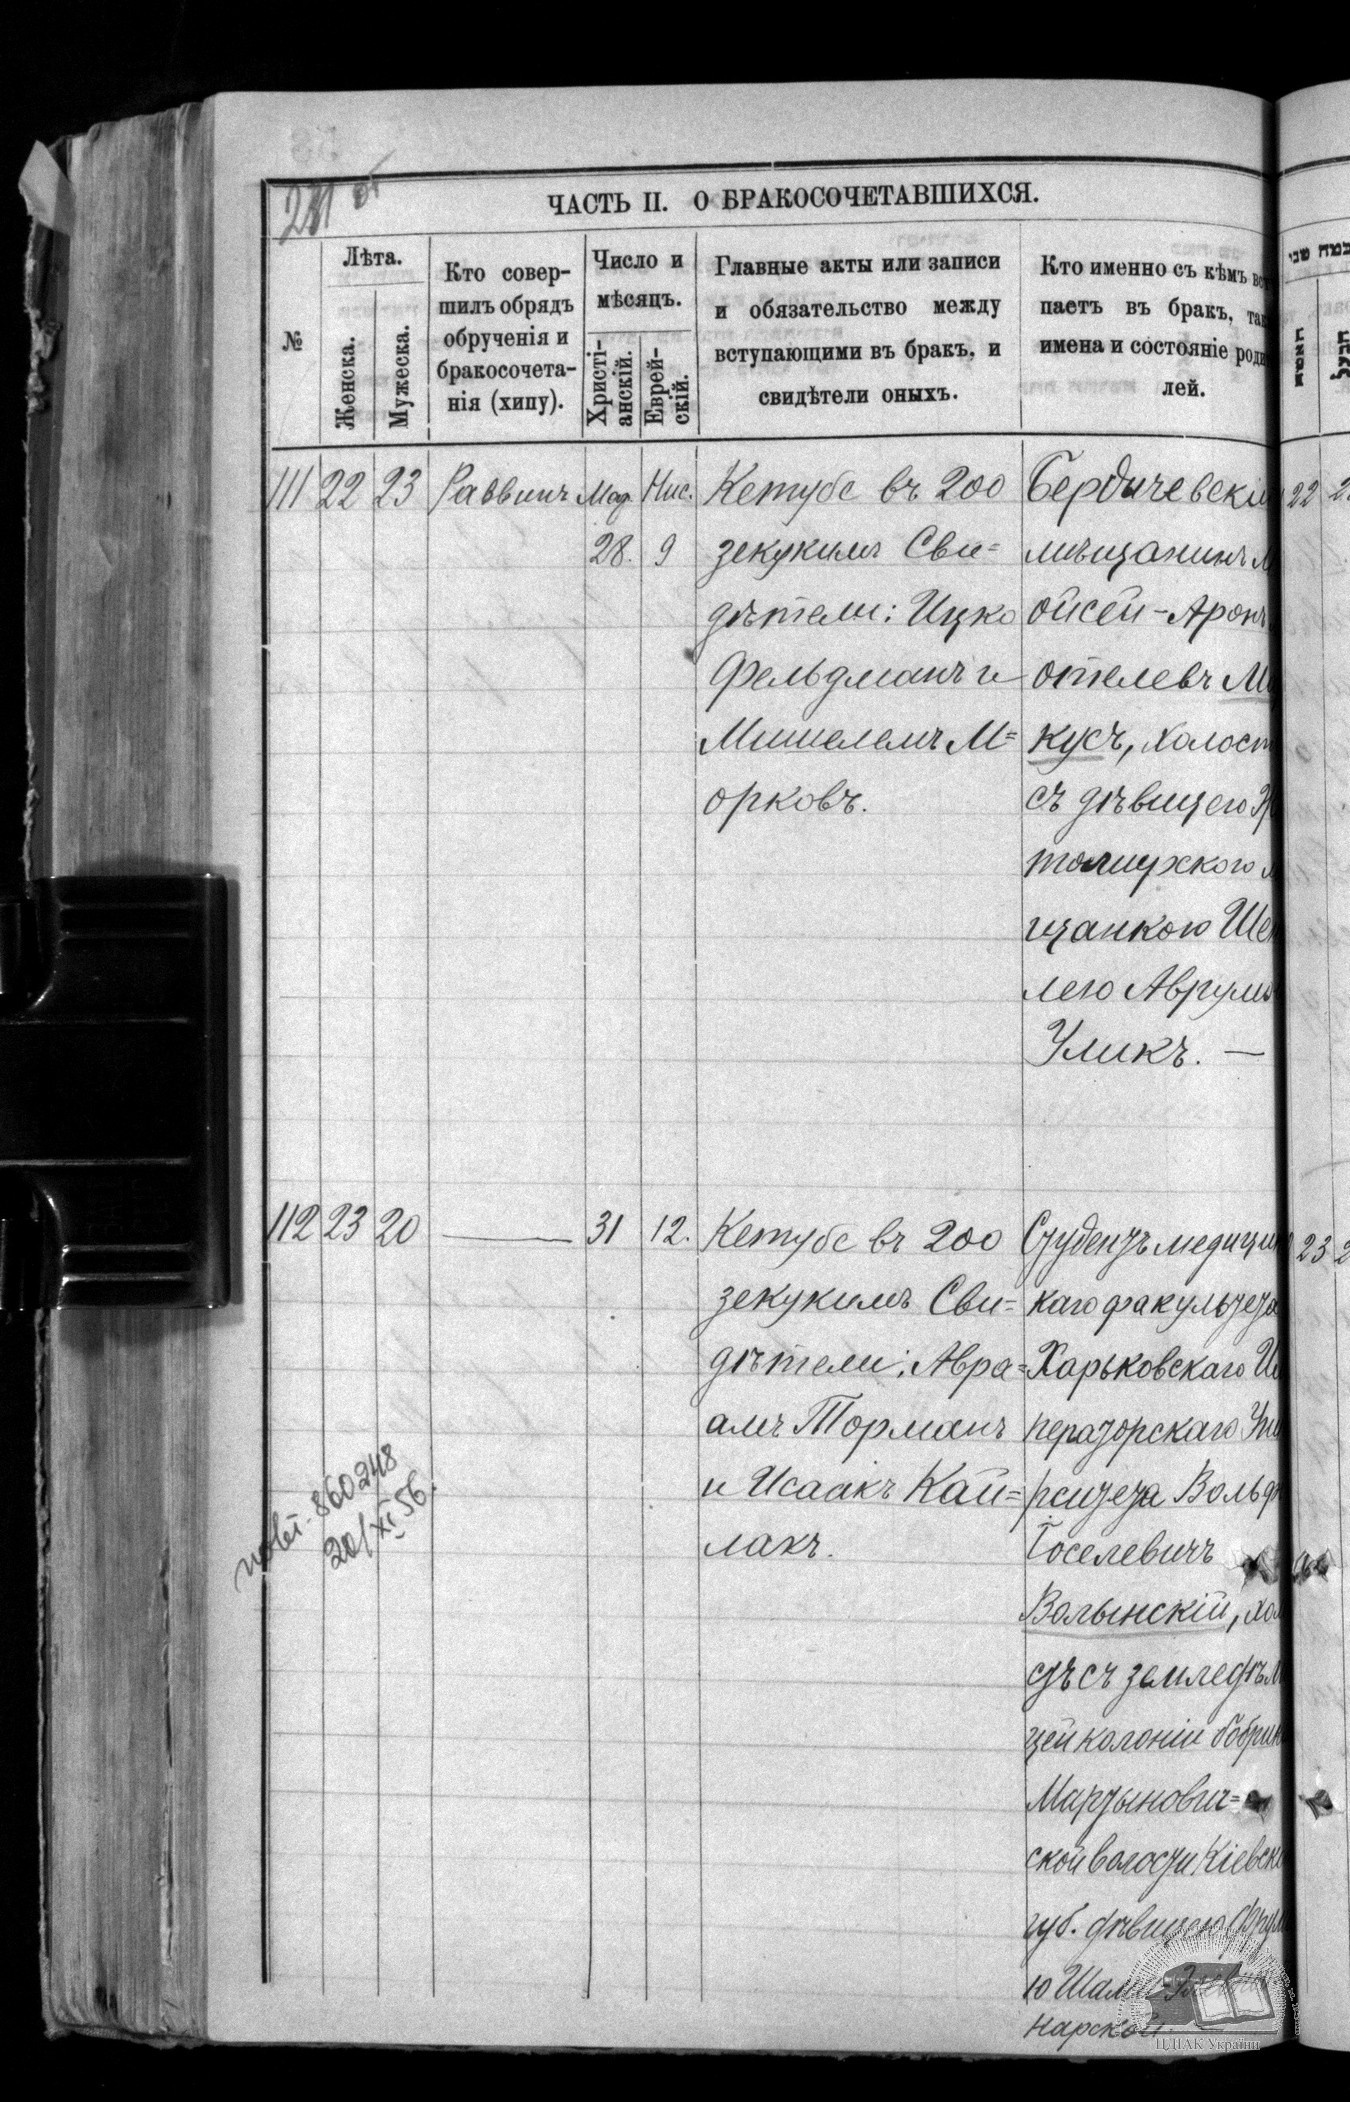 231 об
ЧАСТЬ II. О БРАКОСОЧЕТАВШИХСЯ.
№
Лѣта.
Женска.
Мужеска.
Кто совер-
шилъ обрядъ
обрученія и
бракосочета-
нія (хипу).
Число и
мѣсяцъ.
Христі-
анскій.
Еврей-
скій.
Главные акты или записи
и обязательство между
вступающими въ бракъ, и
свидѣтели оныхъ.
Кто именно съ кѣмъ вст
паетъ въ бракъ, так
имена и состояніе роди
лей.
111 22 23 Раввинъ Мар. 28. Нис. 9
Кетубе въ 200
зекукимъ Сви=
дѣтели: Ицко
Фельдманъ и
Мишелемъ М=
орковъ.
Бердичевскі
мѣщанинъ М
ойсей-Аронъ
отелевъ М
кусъ, холост
съ дѣвицею Ж
томирского м
щанкою Шей
лею Аврумъ
Уликъ. —
22
112 23 20 — 31 12.
Кетубе въ 200
зекукимъ Сви=
дѣтели: Авра=
амъ Торманъ
и Исаакъ Кай=
лакъ.
Студентъ медицин
каго факультета
Харьковскаго И
ператорскаго Уни
рситета Вольф
Іоселевичъ
Волынскій, хол
стъ съ земледѣл
цей колоніи Бобрик
Мартынович=
ской волости Кіевск
губ. дѣвицею Фрум
ю Шам
нарской.
23
повт. 860248
20/XI 56.
ЦДІАК України